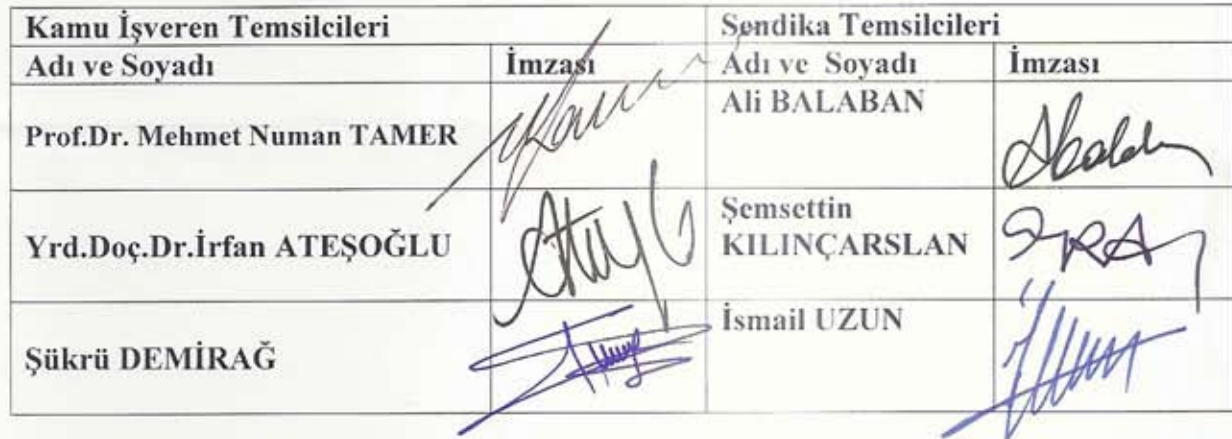 Kamu İşveren Temsilcileri Sendika Temsilcileri
Adı ve Soyadı İmzası Adı ve Soyadı İmzası
Prof.Dr. Mehmet Numan TAMER Ali BALABAN
Yrd.Doç.Dr.İrfan ATEŞOĞLU Şemsettin
KILINÇARSLAN
Şükrü DEMİRAĞ İsmail UZUN